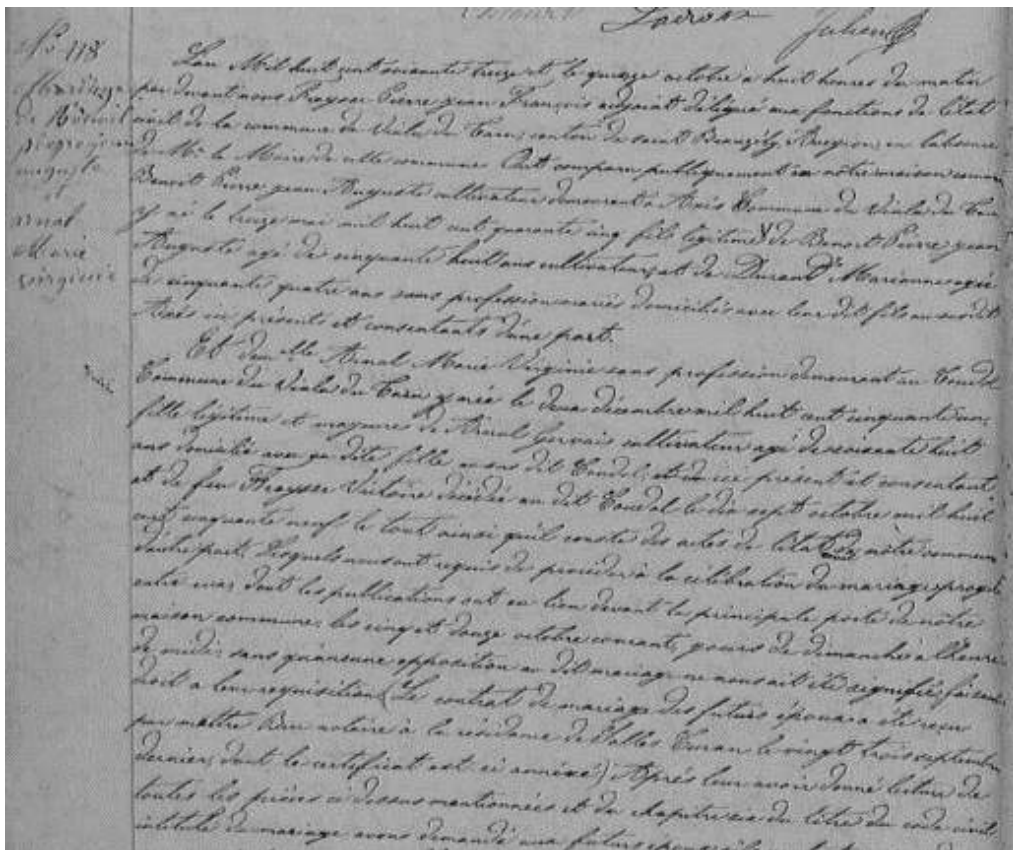 Julien
No 118
Mariage
de Benoit
pierre jean
auguste
et
arnal
Marie
virginie
L'an Mil huit cent soixante treize et le quinze octobre a huit heures du matin
par devant nous Fraysse Pierre jean François adjoint délégué aux fonctions de l'état
civil de la commune de Viala du Tarn, canton de saint Beauzély, Aveyron, en l'absence
de Mr le Maire de cette commune Ont comparu publiquement en nôtre maison commune
Benoit Pierre jean Auguste cultivateur demeurant à Commune du Viala du Tarn
y né le treize mai mil huit cent quarante cinq fils légitime de Benoit Pierre jean
Auguste agé de cinquante huit ans cultivateur, et de Durand Marianne agée
de cinquante quatre ans sans profession mariés domiciliés avec leur dit fils au susdit
ici présents et consentants d'une part.
Et demlle Arnal Marie Virginie sans profession demeurant au Coudol
Commune du Viala du Tarn y née le deux décembre mil huit cent cinquante un,
fille légitime et majeure de Arnal Gervais cultivateur agé de soixante huit
ans domicilié avec sa dite fille au sus dit Coudol, et ici présent et consentant
et de feu Fraysse Victoire décédée au dit Coudol le dix sept octobre mil huit
cent cinquante neuf le tout ainsi qu'il conste des actes de l'état de nôtre commune
d'autre part. Lesquels nous ont requis de procéder à la célébration du mariage projeté
entre eux, dont les publications ont eu lieu devant la principale porte de nôtre
maison commune, les cinq et douze octobre courant, jours de dimanche à l'heure
de midi, sans qu'aucune opposition au dit mariage ne nous ait été signifiée, faisant
droit a leur requisition (Le contrat de mariage des futurs époux a été reçu
par maître notaire à la résidence de Salles Curan le vingt trois septembre
dernier, dont le certificat est ci annéxé) Après leur avoir donné lecture de
toutes les pièces ci dessus mentionnées et du chapitre six du titre du code civil,
intitulé du mariage avons demandé aux futurs époux